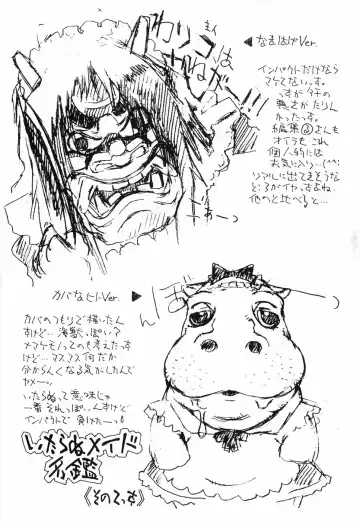 わりコは
いねがー!!
◀なまはげVer.
インパクトだけなら
マケてないっす。
っすがタチの
悪さがたりん
かったっす。
編集さんも
オイラも これ
個人的には
お気に入り…(^^;
リアルに出てきそうな
ところがイヤっすよね
他のと比べると…
あーっ
カバなヒトVer. ▶
カバのつもりで描いたん
すけど… 海獣っぽい?
メマケモノってのも考えたっす
けど… マスマス何だか
分からくなる気がしたんで
ヤメー。
いたらぬって意味じゃ
一番それっぽいんすけど
インパクトで負けたーっ!
いたらぬメイド
名鑑
《その2っす》